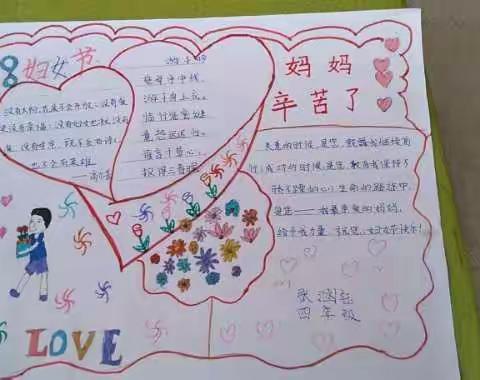 8妇女节
没有太阳,花朵不会开放;没有爱
便没有幸福;没有妇女也就没有
爱,没有母亲,既不会有诗人,
也不会有英雄
——高尔基
游子吟
慈母手中线,
游子身上衣。
临行密密缝,
意恐迟迟归。
谁言寸草心,
报得三春晖。
妈妈
辛苦了
失意的时候,是您,鼓舞我继续前
行;成功的时候,是您,教育我保持不
骄不躁的心;生命的路途中,
是您——我最亲爱的妈妈,
给予我力量,祝您,妇女节快乐!
张
四年级
LOVE